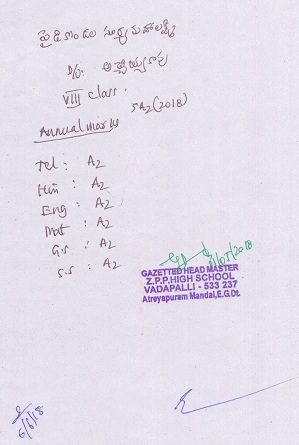 D/o: అప్పయ్య కాపు
VIII class.
SA2 (2018)
Annual marks
Tel : A2
Hin : A2
Eng : A2
Mat : A2
G.S : A2
S.S : A2
GAZETTED HEAD MASTER
Z.P.P.HIGH SCHOOL
VADAPALLI - 533 237
Atreyapuram Mandal,E.G.Dt.
6/6/18